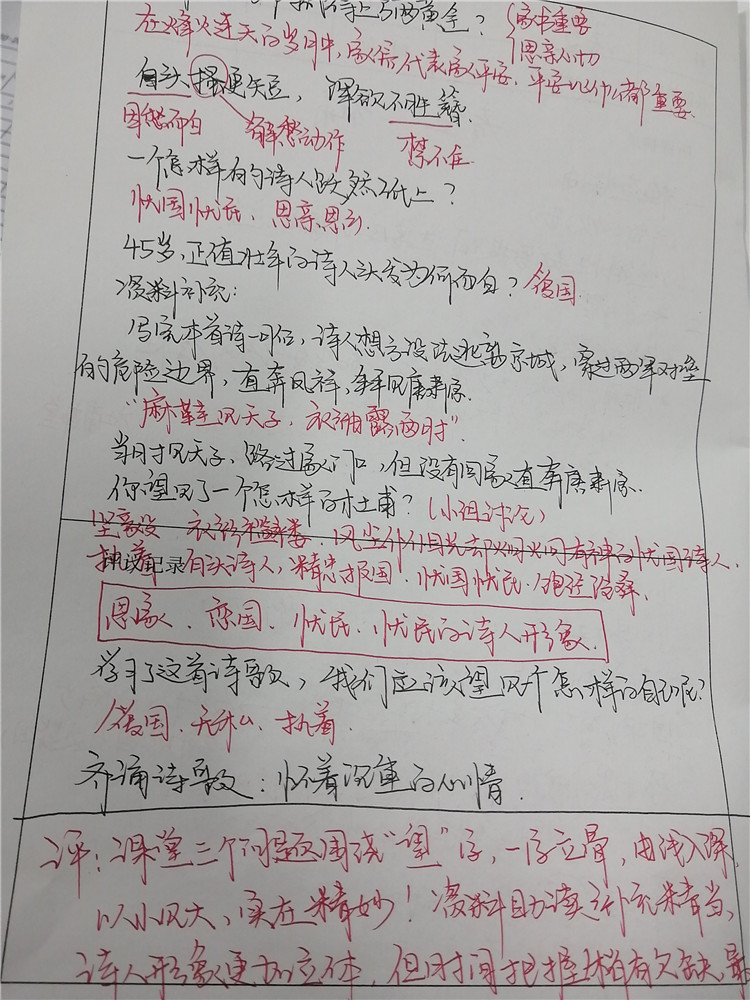 抵得上万两黄金？ {家书重要
在烽火连天的岁月中，家信代表家人平安，平安比什么都重要 {思亲心切
白头搔更短，浑欲不胜簪。
因愁而白 解愁动作 禁不住
一个怎样的诗人跃然纸上？
忧国忧民、思亲思乡
45岁，正值壮年的诗人头发为何而白？ 爱国
资料补充：
写完本首诗一月后，诗人想方设法逃离京城，穿过两军对垒
的危险边界，直奔凤祥，
“麻鞋见天子，衣袖露两肘”
当时见天子，路过家门口，但没有回家直奔
你望见了一个怎样的杜甫？（小组讨论）
衣衫褴褛、风尘仆仆目光却炯炯有神的忧国诗人、
执着 记录 白头诗人，精忠报国、忧国忧民、饱经沧桑
思家、恋国、忧民、忧民的诗人形象
学习了这首诗歌，我们应该望见个怎样的自己呢？
爱国、无私、执着
齐诵诗歌：怀着沉重的心情
评：课堂三个问题围绕“望”字，一字立骨，由浅入深，
以小见大，实在精妙！资料助读补充精当，
诗人形象更加立体，但时间把握稍有欠缺，最